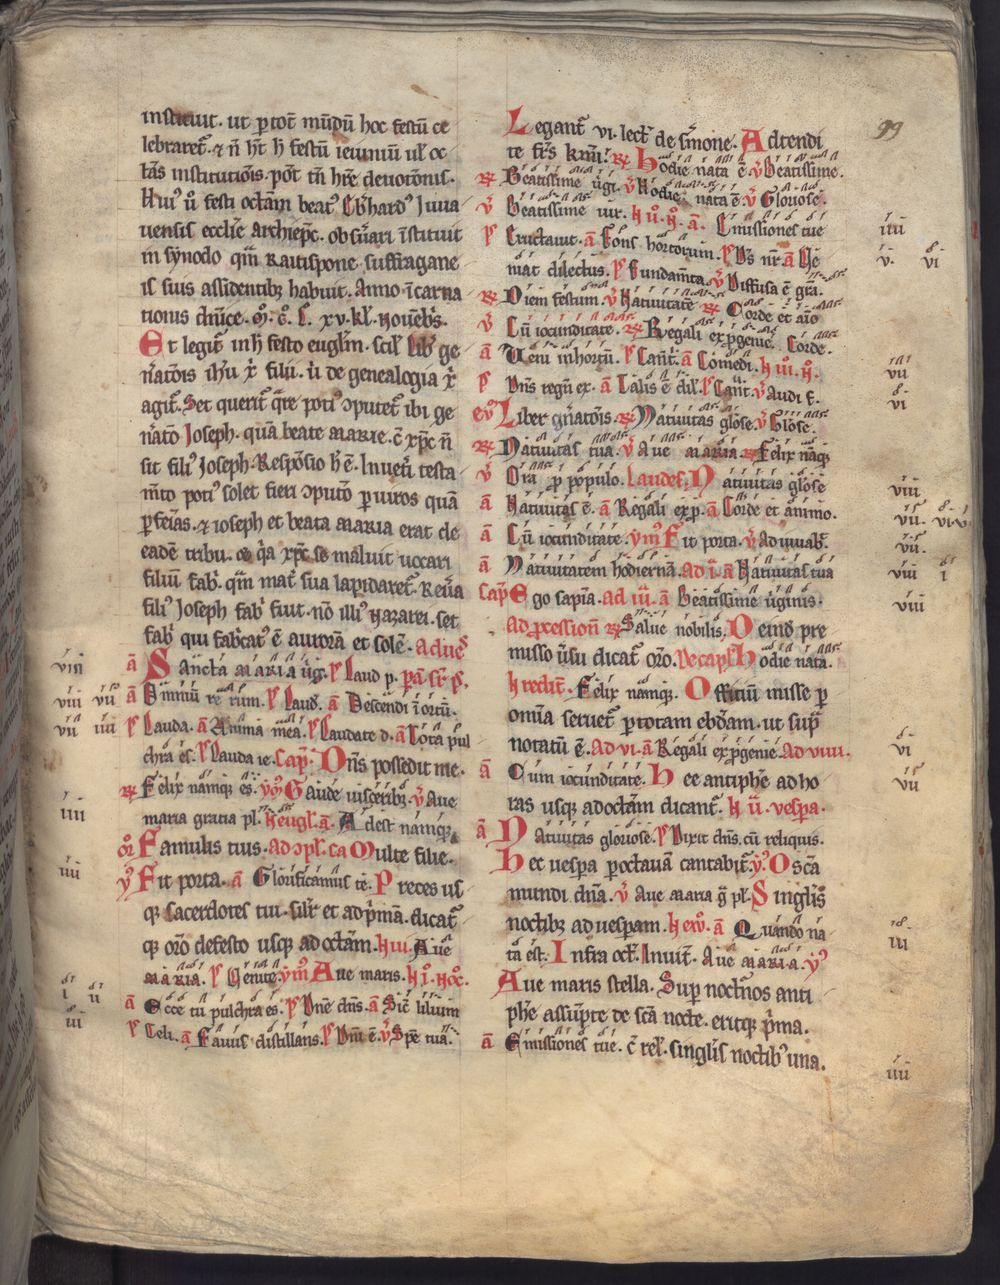 instituit. ut ꝑ tot̄ mūdū hoc festū ce
lebraret᷑. ⁊ n̄ hꝫ h̄ festū ieiuniū ul̓ oc
tās institutiōis. pōt tn̄ hr̄e deuotōnis.
Huiꝰ ū festi octām beatꝰ Ebhardꝰ Juua
uensis eccl̄ie archiep̄c. obsuari īstituit
in synodo qm̄ Ratispone suffragane
is suis assidentibꝫ habuit. Anno īcarna
tionis dn̄ice. m̊. c̊. l̊. xv. kl̄. Nouēb᷑s.
Et legit᷑ in h̄ festo eugl̄m. scil̓ lib᷑ ge
n̄atōis ih̄u x̄ filii. ū de genealogia x̄
agit᷑. Set querit᷑ q̄re potiꝰ ꝯputet᷑ ibi ge
n̄atō Joseph. quā beate Marie. c̄ xp̄c n̄
sit filiꝰ Joseph. Respōsio h̄ ē. Inuet᷑i testa
m̄to potiꝰ solet fieri ꝯputō ꝑ uiros quā
ꝑ feīas. ⁊ ioseph et beata maria erat de
eadē tribu. q̄a xp̄c se maluit uocari
filiū fab᷑. qm̄ mat᷑ sua lapidaret᷑. Reu᷑a
filiꝰ Joseph fab᷑ fuit. nō illiꝰ nazarei. set
fab᷑ qui fab᷑catꝰ ē aurorā et solē. ad ues̄
a̅ Sancta maria ūg. p̄s Laud p.
viii
a̅ Dm̄niū rerum. p̄s Laud. a̅ Descendi ī ortū.
viii vii
p̄s Lauda. a̅ Anima mea. p̄s Laudate d. a̅ Tota pul
vii iiii
chra es. p̄s Lauda ie. cap̄. Dn̄s possedit me.
℟ Felix namqꝫ es. Gaude uisceribꝫ. ℣ Aue
maria gratia pl̄. Adest namqꝫ
iiii
or̄ Famulis tuis. ad ꝯpl̄. ca Multe filie.
℣ Fit porta. a̅ Glorificamus te. Preces us
iiii
qꝫ sacerdotes tui. sil̓r et ad p̄mā. dicat᷑
qꝫ or̄o de festo usqꝫ ad octām. h iii. Aue
maria. p̄s Uenite. ymꝰ Aue maris. h i̊. noc̄.
a̅ Ecce tu pulchra es. p̄s Dn̄e dn̄s. a̅ Sic̄ lilium
i ii
p̄s Celi. a̅ Fauus distillans. p̄s Dn̄i ē. ℣ Spē tua.
iii
99
Legant᷑ vi. lect̄. de s᷑mone. Adtendi
te fr̄s kmī. ℟ Hodie nata ē ℣ Beatissime.
℟ Beatissime ūgi. ℣ Hodie nata ē. ℣ Gloriose.
℣ Beatissime uir. a̅. Emissiones tue
iiii
p̄s Eructauit. a̅ Fons hortorum. p̄s Ds̄ nr̄. a̅ Ue
v. vi
niat dilectus. p̄s Fundam̄ta. ℣ Diffusa ē gr̄a.
℟ Diem festum. ℣ Natiuitatē ℟ Corde et aīo
℣ Cū iocunditate. ℟ Regali ex ꝓgenie. Corde.
a̅ Ueni in hortū. p̄s Cant̄. a̅ Comedi. h iii. n̊.
vii
p̄s Dn̄s regn̄ ex. a̅ Talis ē dil̓. p̄s Cant̄. ℣ Audi f.
vi
eu̅ Liber gn̄atōis. ℟ Natiuitas gl̄ose. ℣ Gl̄ose.
℟ Natiuitas tua. ℣ Aue maria. ℟ Felix nāqꝫ
℣ Ora ꝓ populo. Laudes. Natiuitas gl̄ose
viii
a̅ Natiuitas ē. a̅ Regali ex ꝓ. a̅ Corde et animo.
vii. vi. v
a̅ Cū iocunditate. ymꝰ Fit porta. ℣ Adiuuab᷑.
vii.
a̅ Natiuitatem hodiernā. ad i. a̅ Natiuitas tua
viii i
cap̄ Ego sapīa. ad iii. a̅ Beatissime ūginis.
viii
ad ꝓcessionē ℟ Salue nobilis. Deind pre
misso ūsu dicat᷑ or̄o. Hodie nata.
Felix namqꝫ. Officiū misse ꝑ
om̄ia seruet᷑ ꝑ totam ebd̄am. ut sup̄
notatū ē. Ad vi. a̅ Regali ex ꝓgenie. Ad viiii.
vi
a̅ Cum iocunditate. Hee antiphē ad ho
vii
ras usqꝫ ad octām dicant᷑. h ii. vespa.
a̅ Natiuitas gloriose. p̄s Dixit dn̄s. cū reliquis.
Hec uespa ꝑ octauā cantabit᷑. ℣. O sc̄a
mundi dn̄a. ℣ Aue maria g̅ pl̄. Singlis
noctibꝫ ad uespam. a̅ Quando na
iii
ta est. Infra oct̄. Inuit̄. Aue maria. ℣
Aue maris stella. Sup noct᷑nos anti
phē assūpte de sc̄a nocte. eritqꝫ p̄ma.
a̅ Emissiones tue. c̄ rel̓. singl̓is noctibꝰ una.
iiii